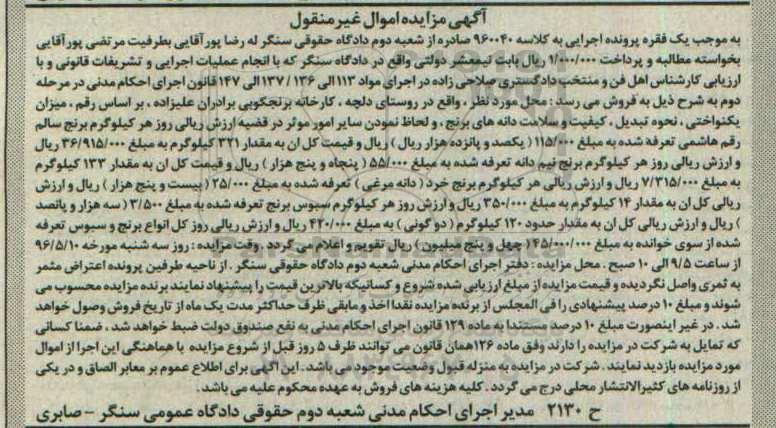 آگهی مزایده اموال غیر منقول
به موجب یک فقره پرونده اجرایی به کلاسه ۹۶۰۰۴۰ صادره از شعبه دوم دادگاه حقوقی سنگر له رضا پورآقایی بطرفیت مرتضی پورآقایی
بخواسته مطالبه و پرداخت ۱/۰۰۰/۰۰۰ ریال بابت نیمعشر دولتی واقع در دادگاه سنگر که با انجام عملیات اجرایی و تشریفات قانونی و با
ارزیابی کارشناس اهل فن و منتخب دادگستری صلاحی زاده در اجرای مواد ۱۱۳ الی ۱۳۶ / ۱۳۷ الی ۱۴۷ قانون اجرای احکام مدنی در مرحله
دوم به شرح ذیل به فروش می رسد : محل مورد نظر ، واقع در روستای دلچه ، کارخانه برنجکوبی برادران علیزاده ، بر اساس رقم ، میزان
یکنواختی ، نحوه تبدیل ، کیفیت و سلامت دانه های برنج ، و لحاظ نمودن سایر امور موثر در قضیه ارزش ریالی روز هر کیلوگرم برنج سالم
رقم هاشمی تعرفه شده به مبلغ ۱۱۵/۰۰۰ ( یکصد و پانزده هزار ریال ) ریال و قیمت کل ان به مقدار ۳۲۱ کیلوگرم به مبلغ ۳۶/۹۱۵/۰۰۰ ریال
و ارزش ریالی روز هر کیلوگرم برنج نیم دانه تعرفه شده به مبلغ ۵۵/۰۰۰ ( پنجاه و پنج هزار ) ریال و قیمت کل ان به مقدار ۱۳۳ کیلوگرم
به مبلغ ۷/۳۱۵/۰۰۰ ریال و ارزش ریالی هر کیلوگرم برنج خرد ( دانه مرغی ) تعرفه شده به مبلغ ۲۵/۰۰۰ ( بیست و پنج هزار ) ریال و ارزش
ریالی کل ان به مقدار ۱۴ کیلوگرم به مبلغ ۳۵۰/۰۰۰ ریال و ارزش روز هر کیلوگرم سبوس برنج تعرفه شده به مبلغ ۳/۵۰۰ ( سه هزار و پانصد
) ریال و ارزش ریالی کل ان به مقدار حدود ۱۲۰ کیلوگرم ( دو گونی ) به مبلغ ۴۲۰/۰۰۰ ریال و ارزش ریالی روز کل انواع برنج و سبوس تعرفه
شده از سوی خوانده به مبلغ ۴۵/۰۰۰/۰۰۰ ( چهل و پنج میلیون ) ریال تقویم و اعلام می گردد . وقت مزایده : روز سه شنبه مورخه ۹۶/۵/۱۰
از ساعت ۹/۵ الی ۱۰ صبح . محل مزایده : دفتر اجرای احکام مدنی شعبه دوم دادگاه حقوقی سنگر . از ناحیه طرفین پرونده اعتراض مثمر
به ثمری واصل نگردیده و قیمت مزایده از مبلغ ارزیابی شده شروع و کسانیکه بالاترین قیمت را پیشنهاد نمایند برنده مزایده محسوب می
شوند و مبلغ ۱۰ درصد پیشنهادی را فی المجلس از برنده مزایده نقدا اخذ و مابقی ظرف حداکثر مدت یک ماه از تاریخ فروش وصول خواهد
شد . در غیر اینصورت مبلغ ۱۰ درصد مستندا به ماده ۱۲۹ قانون اجرای احکام مدنی به نفع صندوق دولت ضبط خواهد شد ، ضمنا کسانی
که تمایل به شرکت در مزایده را دارند وفق ماده ۱۲۶ همان قانون می توانند ظرف ۵ روز قبل از شروع مزایده با هماهنگی این اجرا از اموال
مورد مزایده بازدید نمایند . شرکت در مزایده به منزله قبول وضعیت موجود می باشد . این آگهی برای اطلاع عموم بر معابر الصاق و در یکی
از روزنامه های کثیرالانتشار محلی درج می گردد . کلیه هزینه های فروش به عهده محکوم علیه می باشد .
ح ۲۱۳۰ مدیر اجرای احکام مدنی شعبه دوم حقوقی دادگاه عمومی سنگر – صابری